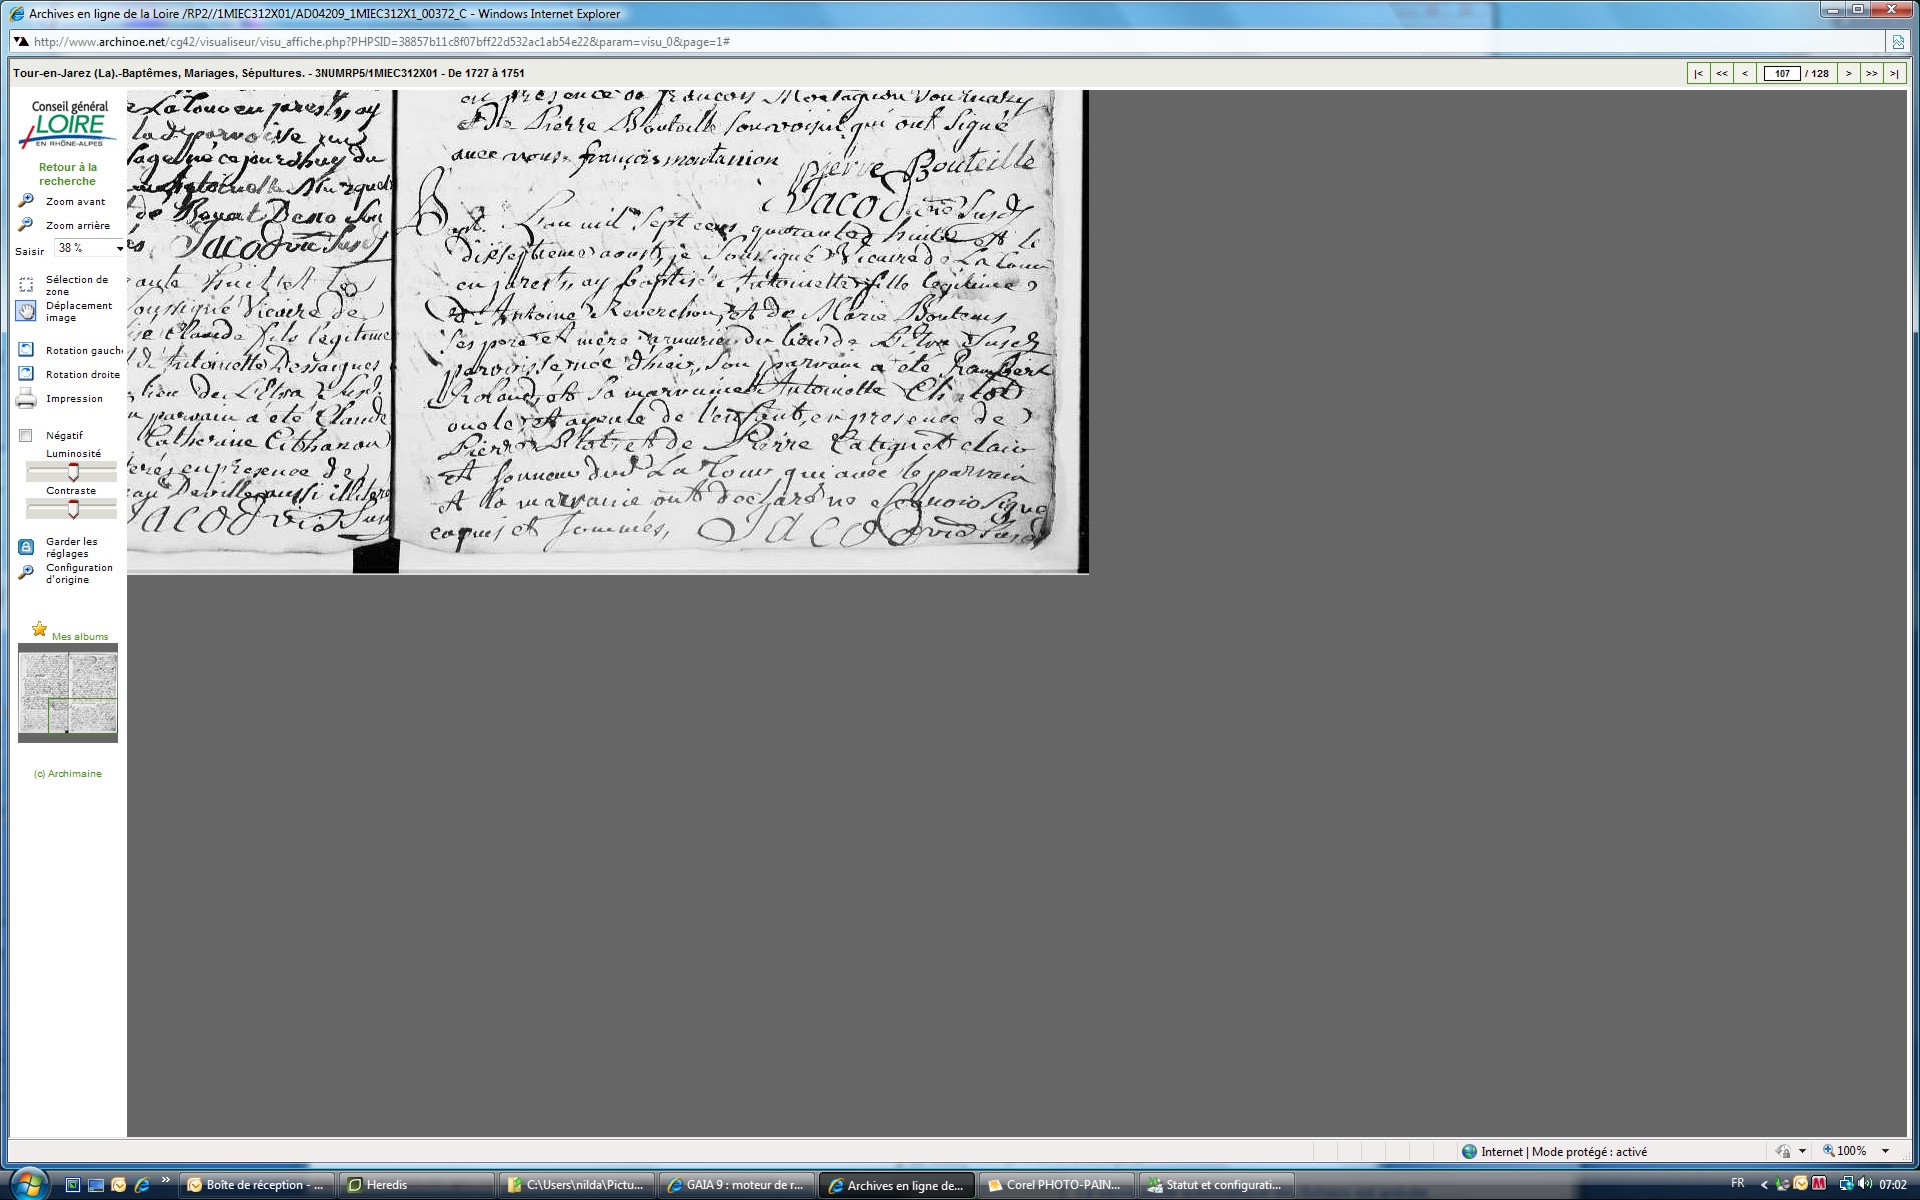 Archives en ligne de la Loire /RP2//1MIEC312X01/AD04209_1MIEC312X1_00372_C - Windows Internet Explorer
http://www.archinoe.net/cg42/visualiseur/visu_affiche.php?PHPSID=38857b11c8f07bff22d532ac1ab54e22&param=visu_0&page=1#
Tour-en-Jarez (La).-Baptêmes, Mariages, Sépultures. - 3NUMRP5/1MIEC312X01 - De 1727 à 1751
|< << < 107 / 128 > >> >|
Conseil général
LOIRE
EN RHÔNE-ALPES
Retour à la
recherche
Zoom avant
Zoom arrière
Saisir 38 %
Sélection de
zone
Déplacement
image
Rotation gauche
Rotation droite
Impression
Négatif
Luminosité
Contraste
Garder les
réglages
Configuration
d'origine
Mes albums
(c) Archimaine
La tour en jarest, ay
la d parroisse
né ce jourdhuy du
Antoinette
de
Jacod vic Susd
huit et le
soussigné Vicaire de
Claude fils légitime
d'Antoinette Dessaignes
lieu de L'Etra Susd
parvain a été Claude
Catherine
en presence de
Deville aussi illiteré
Jacod vic Sus
en presence de françois Montagnon
et de Pierre Bouteille son voisin qui ont signé
avec nous. françois montanion
Pierre Bouteille
Jacod vic Susd
Bapt. L'an mil sept cens quarante huit et le
dixseptieme aoust, je soussigné Vicaire de La tour
en jarest, ay baptisé Antoinette fille légitime
d'Antoine Reverchon, et de Marie Boutens
ses pere et mere armurier du lieu de L'Etra Susd
parroisse née d'hier, son parvain a été Rambert
Roland, et sa marraine Antoinette Chatot
oncle et ayeule de l'enfant, en presence de
Pierre Blot, et de Pierre Catignet clair
et sonneur dud La Tour qui avec le parvain
et la marraine ont declaré ne sçavoir signer
enquis et sommés, Jacod vic Susd
Internet | Mode protégé : activé
100%
Boîte de réception - ...
Heredis
C:\Users\nilda\Pictu...
GAIA 9 : moteur de r...
Archives en ligne de...
Corel PHOTO-PAIN...
Statut et configurati...
FR
07:02